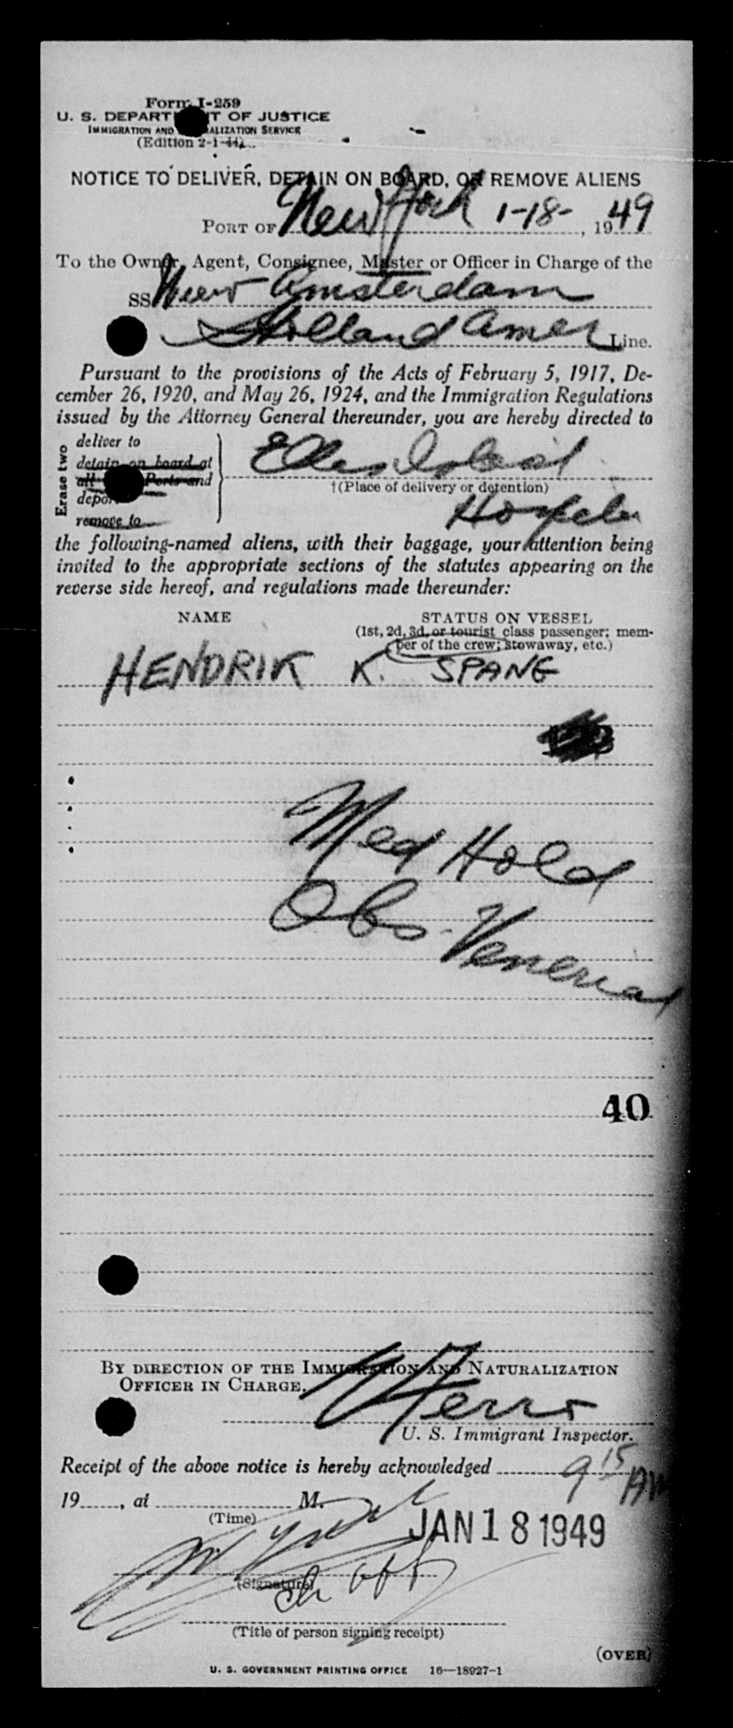 Form I-259
U. S. DEPARTMENT OF JUSTICE
IMMIGRATION AND NATURALIZATION SERVICE
(Edition 2-1-44)
NOTICE TO DELIVER, DETAIN ON BOARD, OR REMOVE ALIENS
PORT OF New York 1-18-, 1949
To the Owner, Agent, Consignee, Master or Officer in Charge of the
SS Nieuw Amsterdam
Holland Amer Line.
Pursuant to the provisions of the Acts of February 5, 1917, De-
cember 26, 1920, and May 26, 1924, and the Immigration Regulations
issued by the Attorney General thereunder, you are hereby directed to
Erase two
deliver to
detain on board at
all Ports and
deport
remove to
Ellis Island
†(Place of delivery or detention)
Hospital
the following-named aliens, with their baggage, your attention being
invited to the appropriate sections of the statutes appearing on the
reverse side hereof, and regulations made thereunder:
NAME STATUS ON VESSEL
(1st, 2d, 3d, or tourist class passenger; mem-
ber of the crew; stowaway, etc.)
HENDRIK K. SPANG
Med Hold
Obs. Venerial
40
BY DIRECTION OF THE IMMIGRATION AND NATURALIZATION
OFFICER IN CHARGE.
Ferro
U. S. Immigrant Inspector.
Receipt of the above notice is hereby acknowledged 9 15 AM
19......, at .................... M.
(Time)
JAN 18 1949
(Signature)
Ch Off
(Title of person signing receipt)
(OVER)
U. S. GOVERNMENT PRINTING OFFICE 16—18927-1